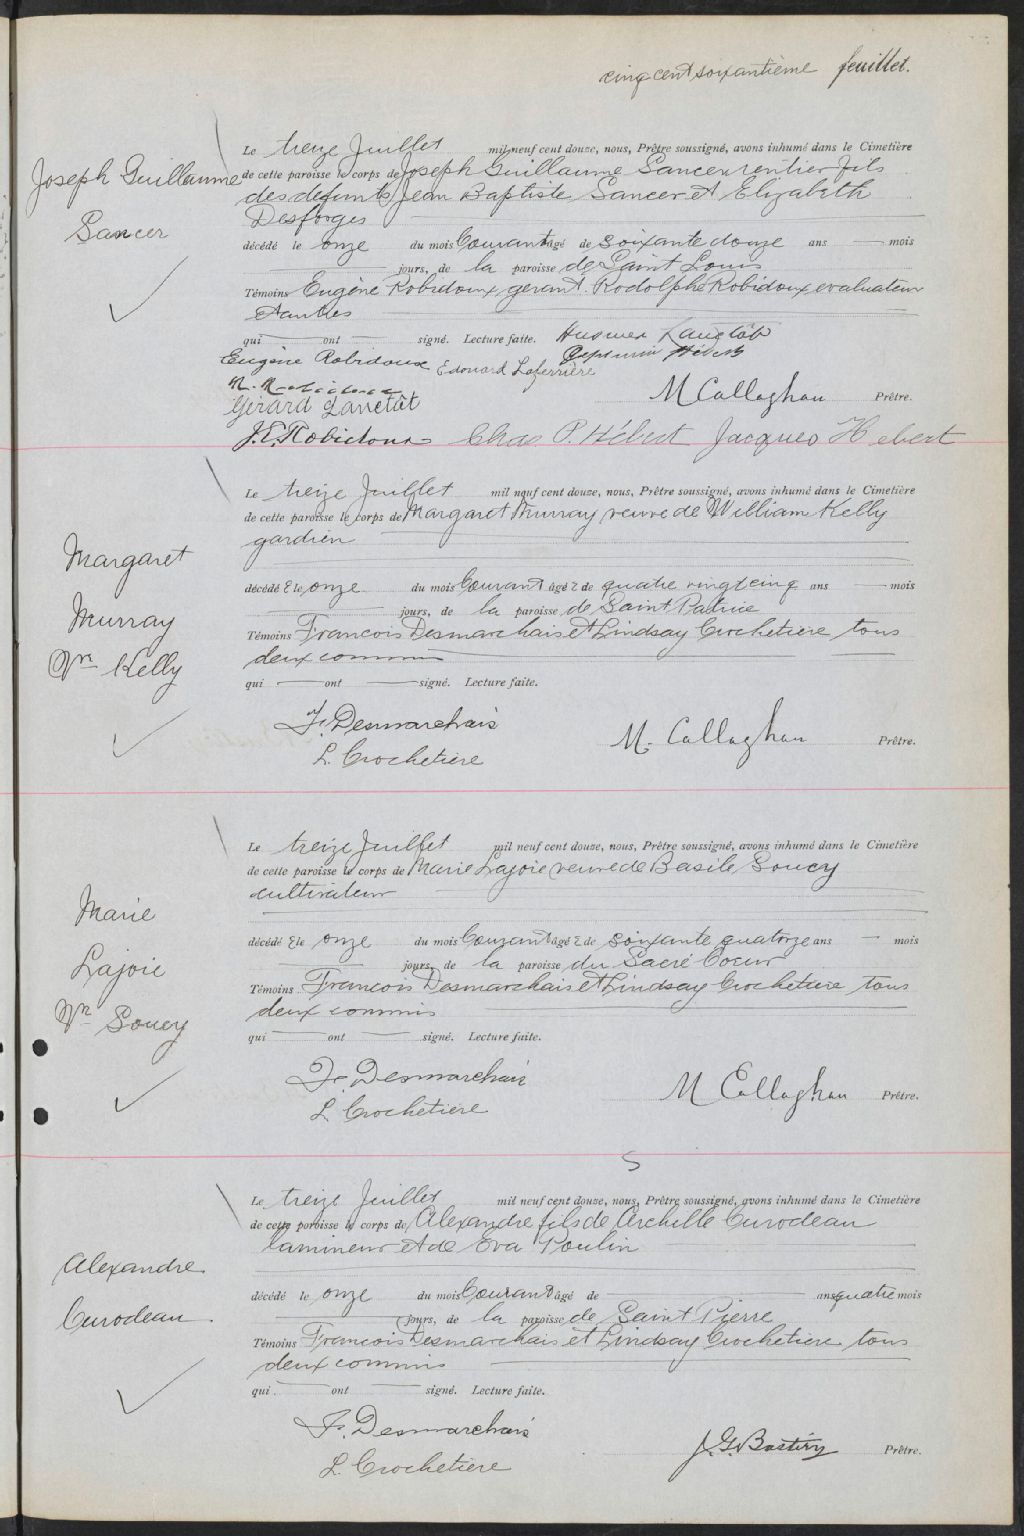 cinq cent soixantième feuillet.
Joseph Guillaume
Sancer
Le treize Juillet mil neuf cent douze, nous, Prêtre soussigné, avons inhumé dans le Cimetière
de cette paroisse le corps de Joseph Guillaume Sancer rentier fils
des defunts Jean Baptiste Sancer et Elizabeth
Desforges
décédé le onze du mois Courant âgé de soixante douze ans mois
jours, de la paroisse de Saint Louis
Témoins Eugène Robidoux, gerant. Rodolphe Robidoux evaluateur
et autres
qui ont signé. Lecture faite. Lanctôt
Eugène Robidoux Edouard Laferrière Hébert
Gérard Lanctôt M Callaghan Prêtre.
J.E. Robidoux Chas P. Hébert Jacques Hebert
Margaret
Murray
Vve Kelly
Le treize Juillet mil neuf cent douze, nous, Prêtre soussigné, avons inhumé dans le Cimetière
de cette paroisse le corps de Margaret Murray veuve de William Kelly
gardien
décédé e le onze du mois Courant âgé e de quatre vingt cinq ans mois
jours, de la paroisse de Saint Patrice
Témoins Francois Desmarchais et Lindsay Crochetiere tous
deux commis
qui ont signé. Lecture faite.
F. Desmarchais
L. Crochetiere
M. Callaghan Prêtre.
Marie
Lajoie
Vve Soucy
Le treize Juillet mil neuf cent douze, nous, Prêtre soussigné, avons inhumé dans le Cimetière
de cette paroisse le corps de Marie Lajoie veuve de Basile Soucy
cultivateur
décédé e le onze du mois Courant âgé e de soixante quatorze ans mois
jours, de la paroisse du Sacré Coeur
Témoins Francois Desmarchais et Lindsay Crochetiere tous
deux commis
qui ont signé. Lecture faite.
F. Desmarchais
L. Crochetiere
M Callaghan Prêtre.
Alexandre
Curodeau
Le treize Juillet mil neuf cent douze, nous, Prêtre soussigné, avons inhumé dans le Cimetière
de cette paroisse le corps de Alexandre fils de Archille Curodeau
lamineur et de Eva Poulin
décédé le onze du mois Courant âgé de ans quatre mois
jours, de la paroisse de Saint Pierre
Témoins Francois Desmarchais et Lindsay Crochetiere tous
deux commis
qui ont signé. Lecture faite.
F. Desmarchais
L. Crochetiere
Prêtre.